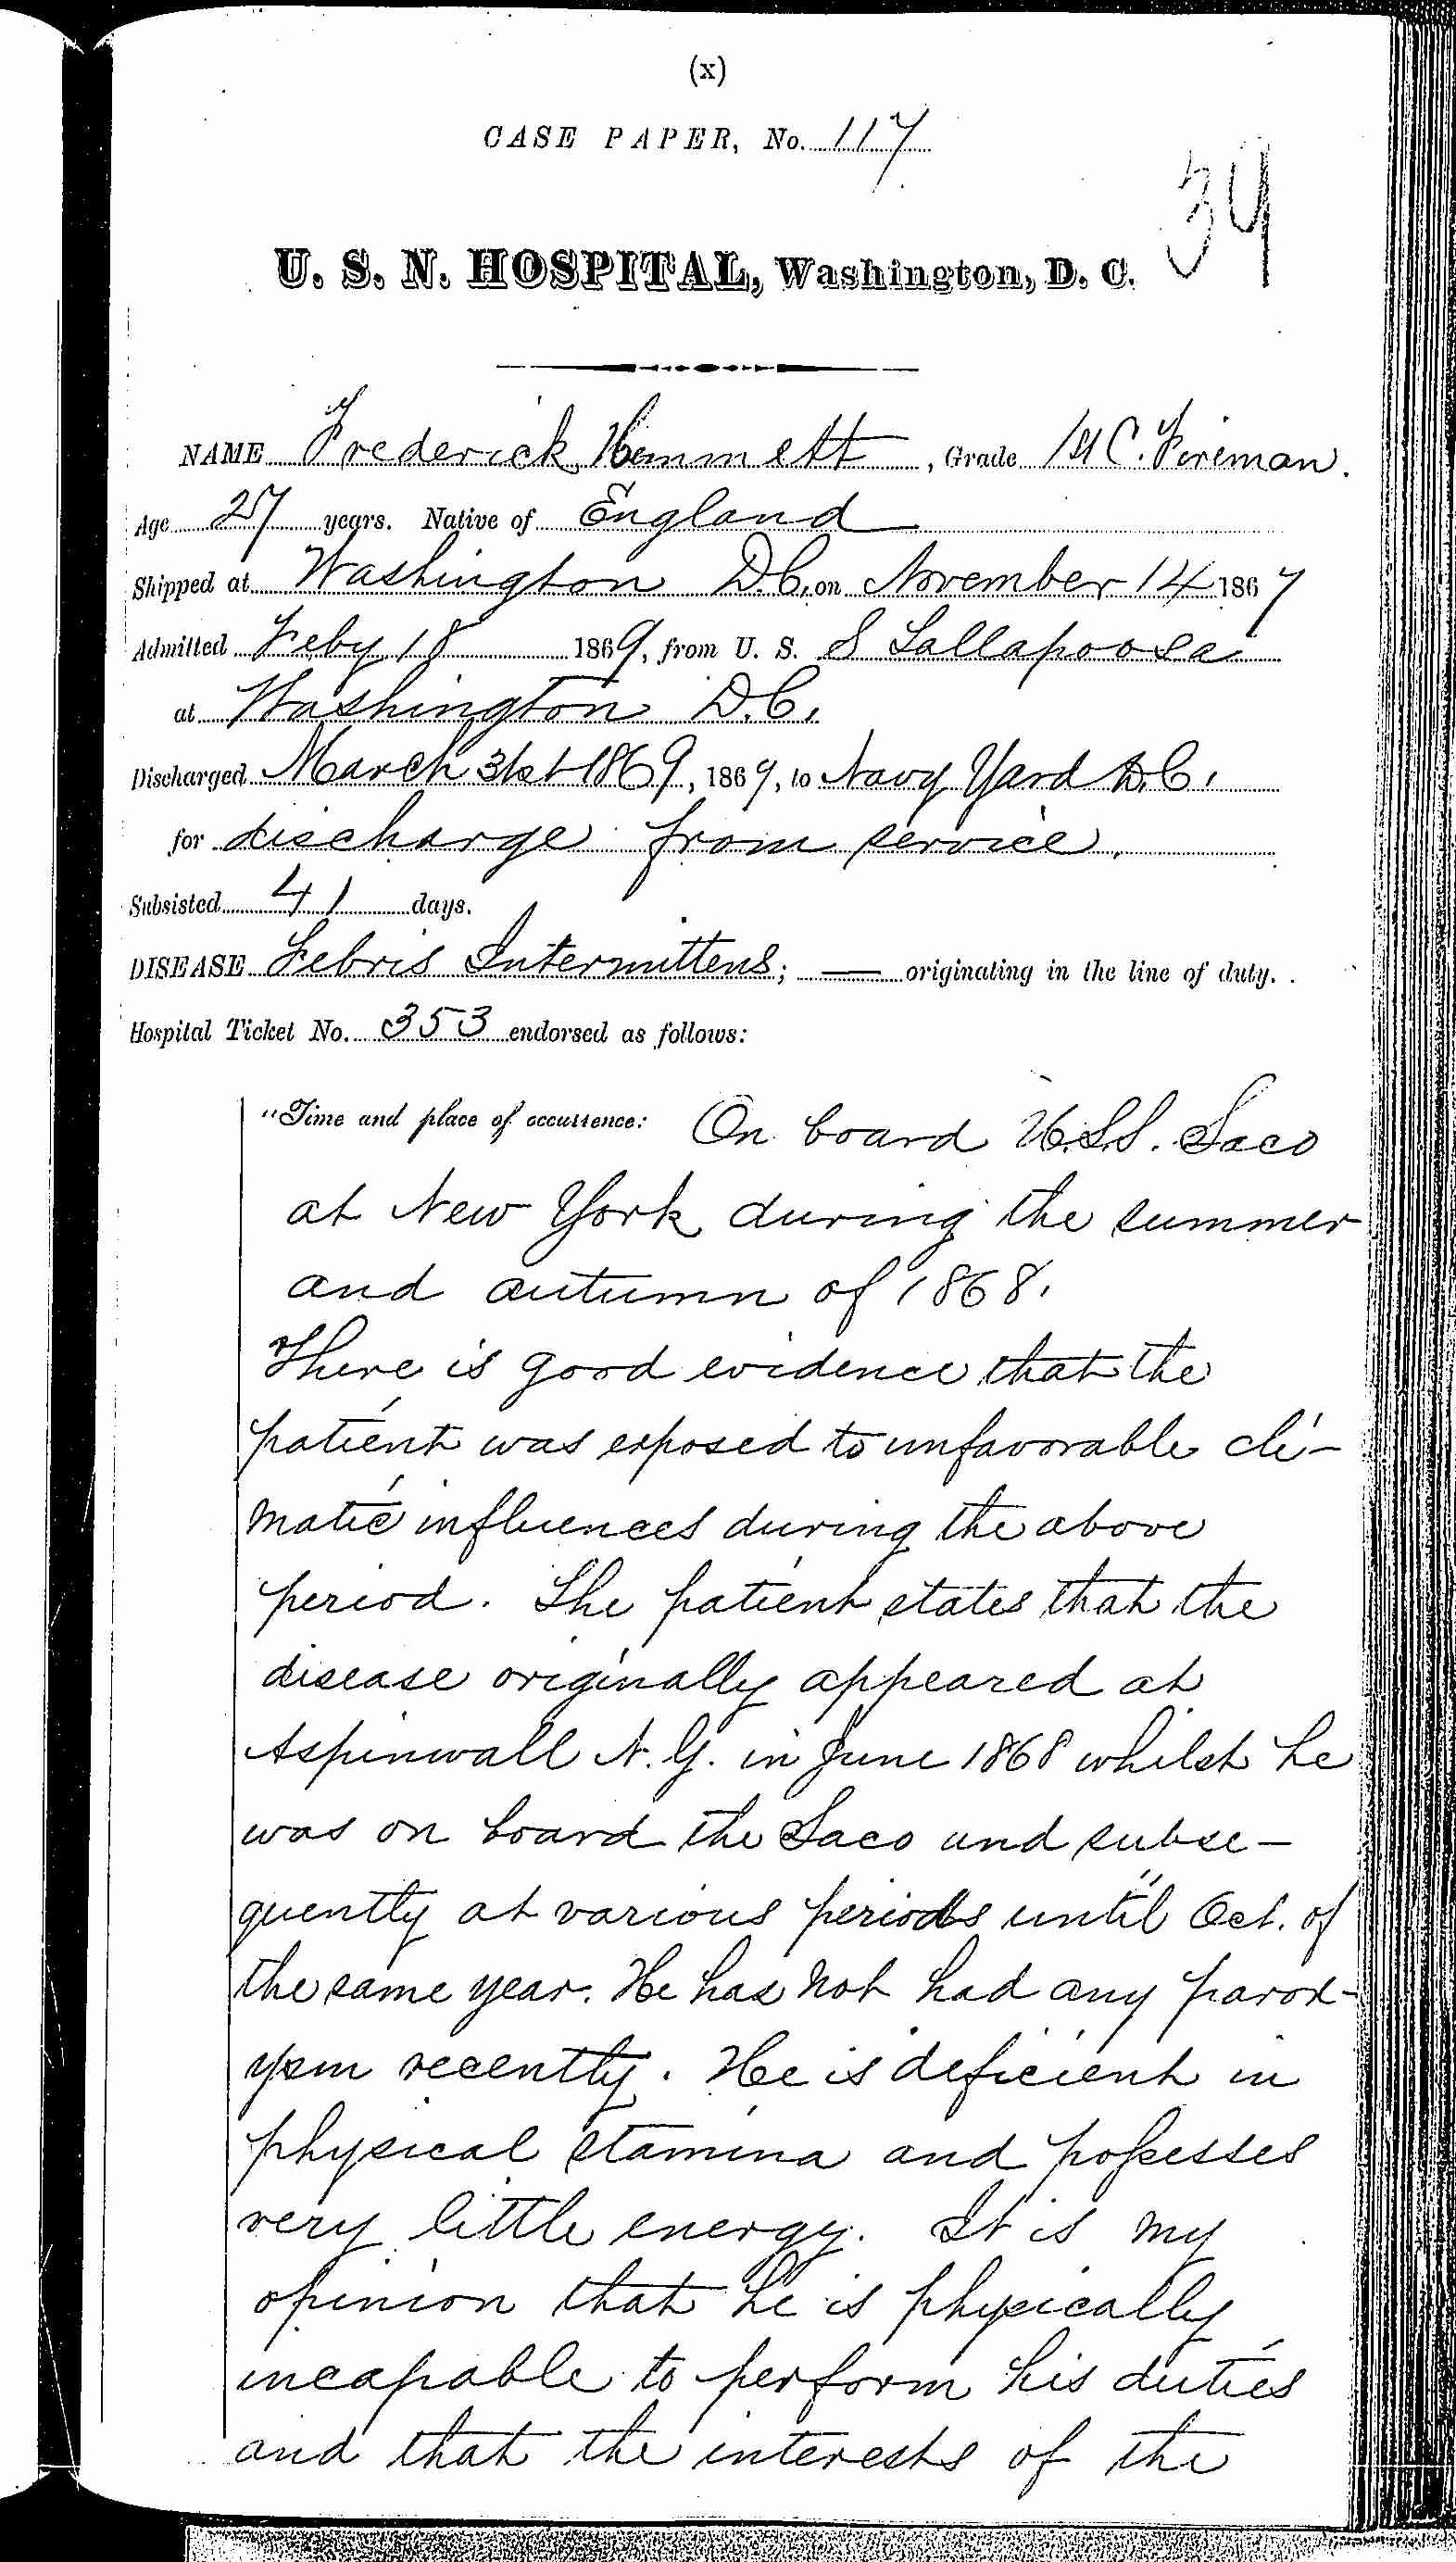 (x)
CASE PAPER, No. 117
39
U. S. N. HOSPITAL, Washington, D. C.
NAME Frederick Hemmett, Grade 1st C. Fireman.
Age 27 years. Native of England
Shipped at Washington D.C. on November 14 1867
Admitted Feby 18 1869, from U. S. S Tallapoosa
at Washington D.C.
Discharged March 31st 1869, 1869, to Navy Yard D.C.
for discharge from service.
Subsisted 41 days.
DISEASE Febris Intermittens; — originating in the line of duty.
Hospital Ticket No. 353 endorsed as follows:
"Time and place of occurrence: On board U.S.S. Saco
at New York during the summer
and autumn of 1868.
There is good evidence that the
patient was exposed to unfavorable cli-
matic influences during the above
period. The patient states that the
disease originally appeared at
Aspinwall N.G. in June 1868 whilst he
was on board the Saco and subse-
quently at various periods until Oct. of
the same year. He has not had any parox-
ysm recently. He is deficient in
physical stamina and possesses
very little energy. It is my
opinion that he is physically
incapable to perform his duties
and that the interests of the